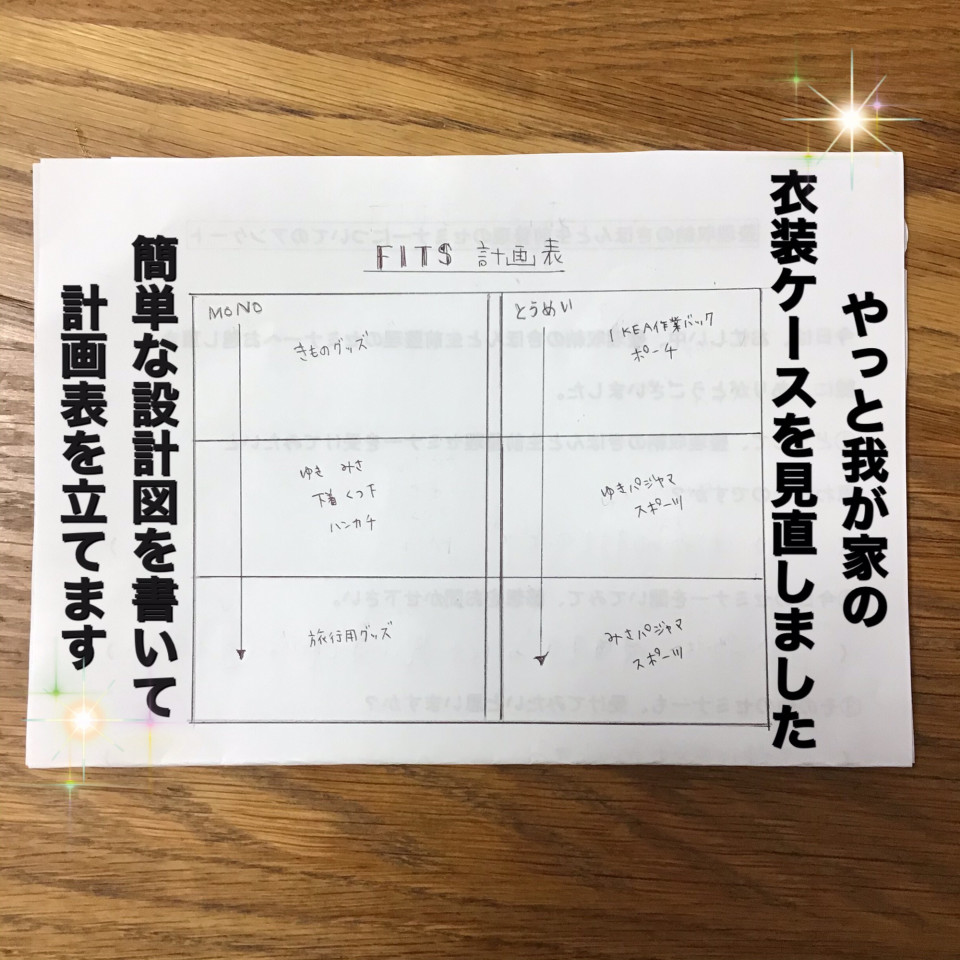 やっと我が家の
衣装ケースを見直しました
簡単な設計図を書いて
計画表を立てます
FITS 計画表
MONO
きものグッズ
ゆき みさ
下着 くつ下
ハンカチ
旅行用グッズ
とうめい
IKEA作業バック
ポーチ
ゆきパジャマ
スポーツ
みさパジャマ
スポーツ